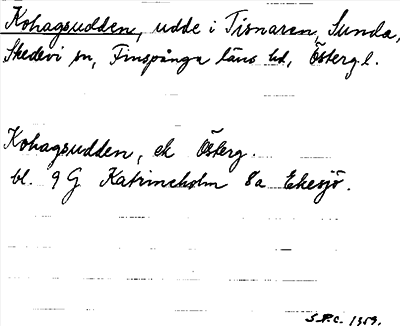 Kohagsudden, udde i Tisnaren, Sunda,
Skedevi sn, Finspånga läns hd, Österg. l.
Kohagsudden, ek Österg.
bl. 9 G Katrineholm 8a Ekesjö.
S.P.C. 1959.